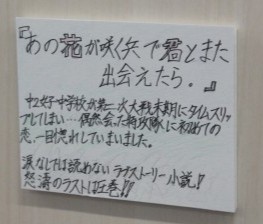 『あの花が咲く丘で君とまた
出会えたら。』
中2女子中学校が第二次大戦末期にタイムスリッ
プしてしまい…偶然会った特攻隊に初めての
恋、一目惚れしてしまいました。
涙なしでは読めないラブストーリー小説!!
怒涛のラストは圧巻!!